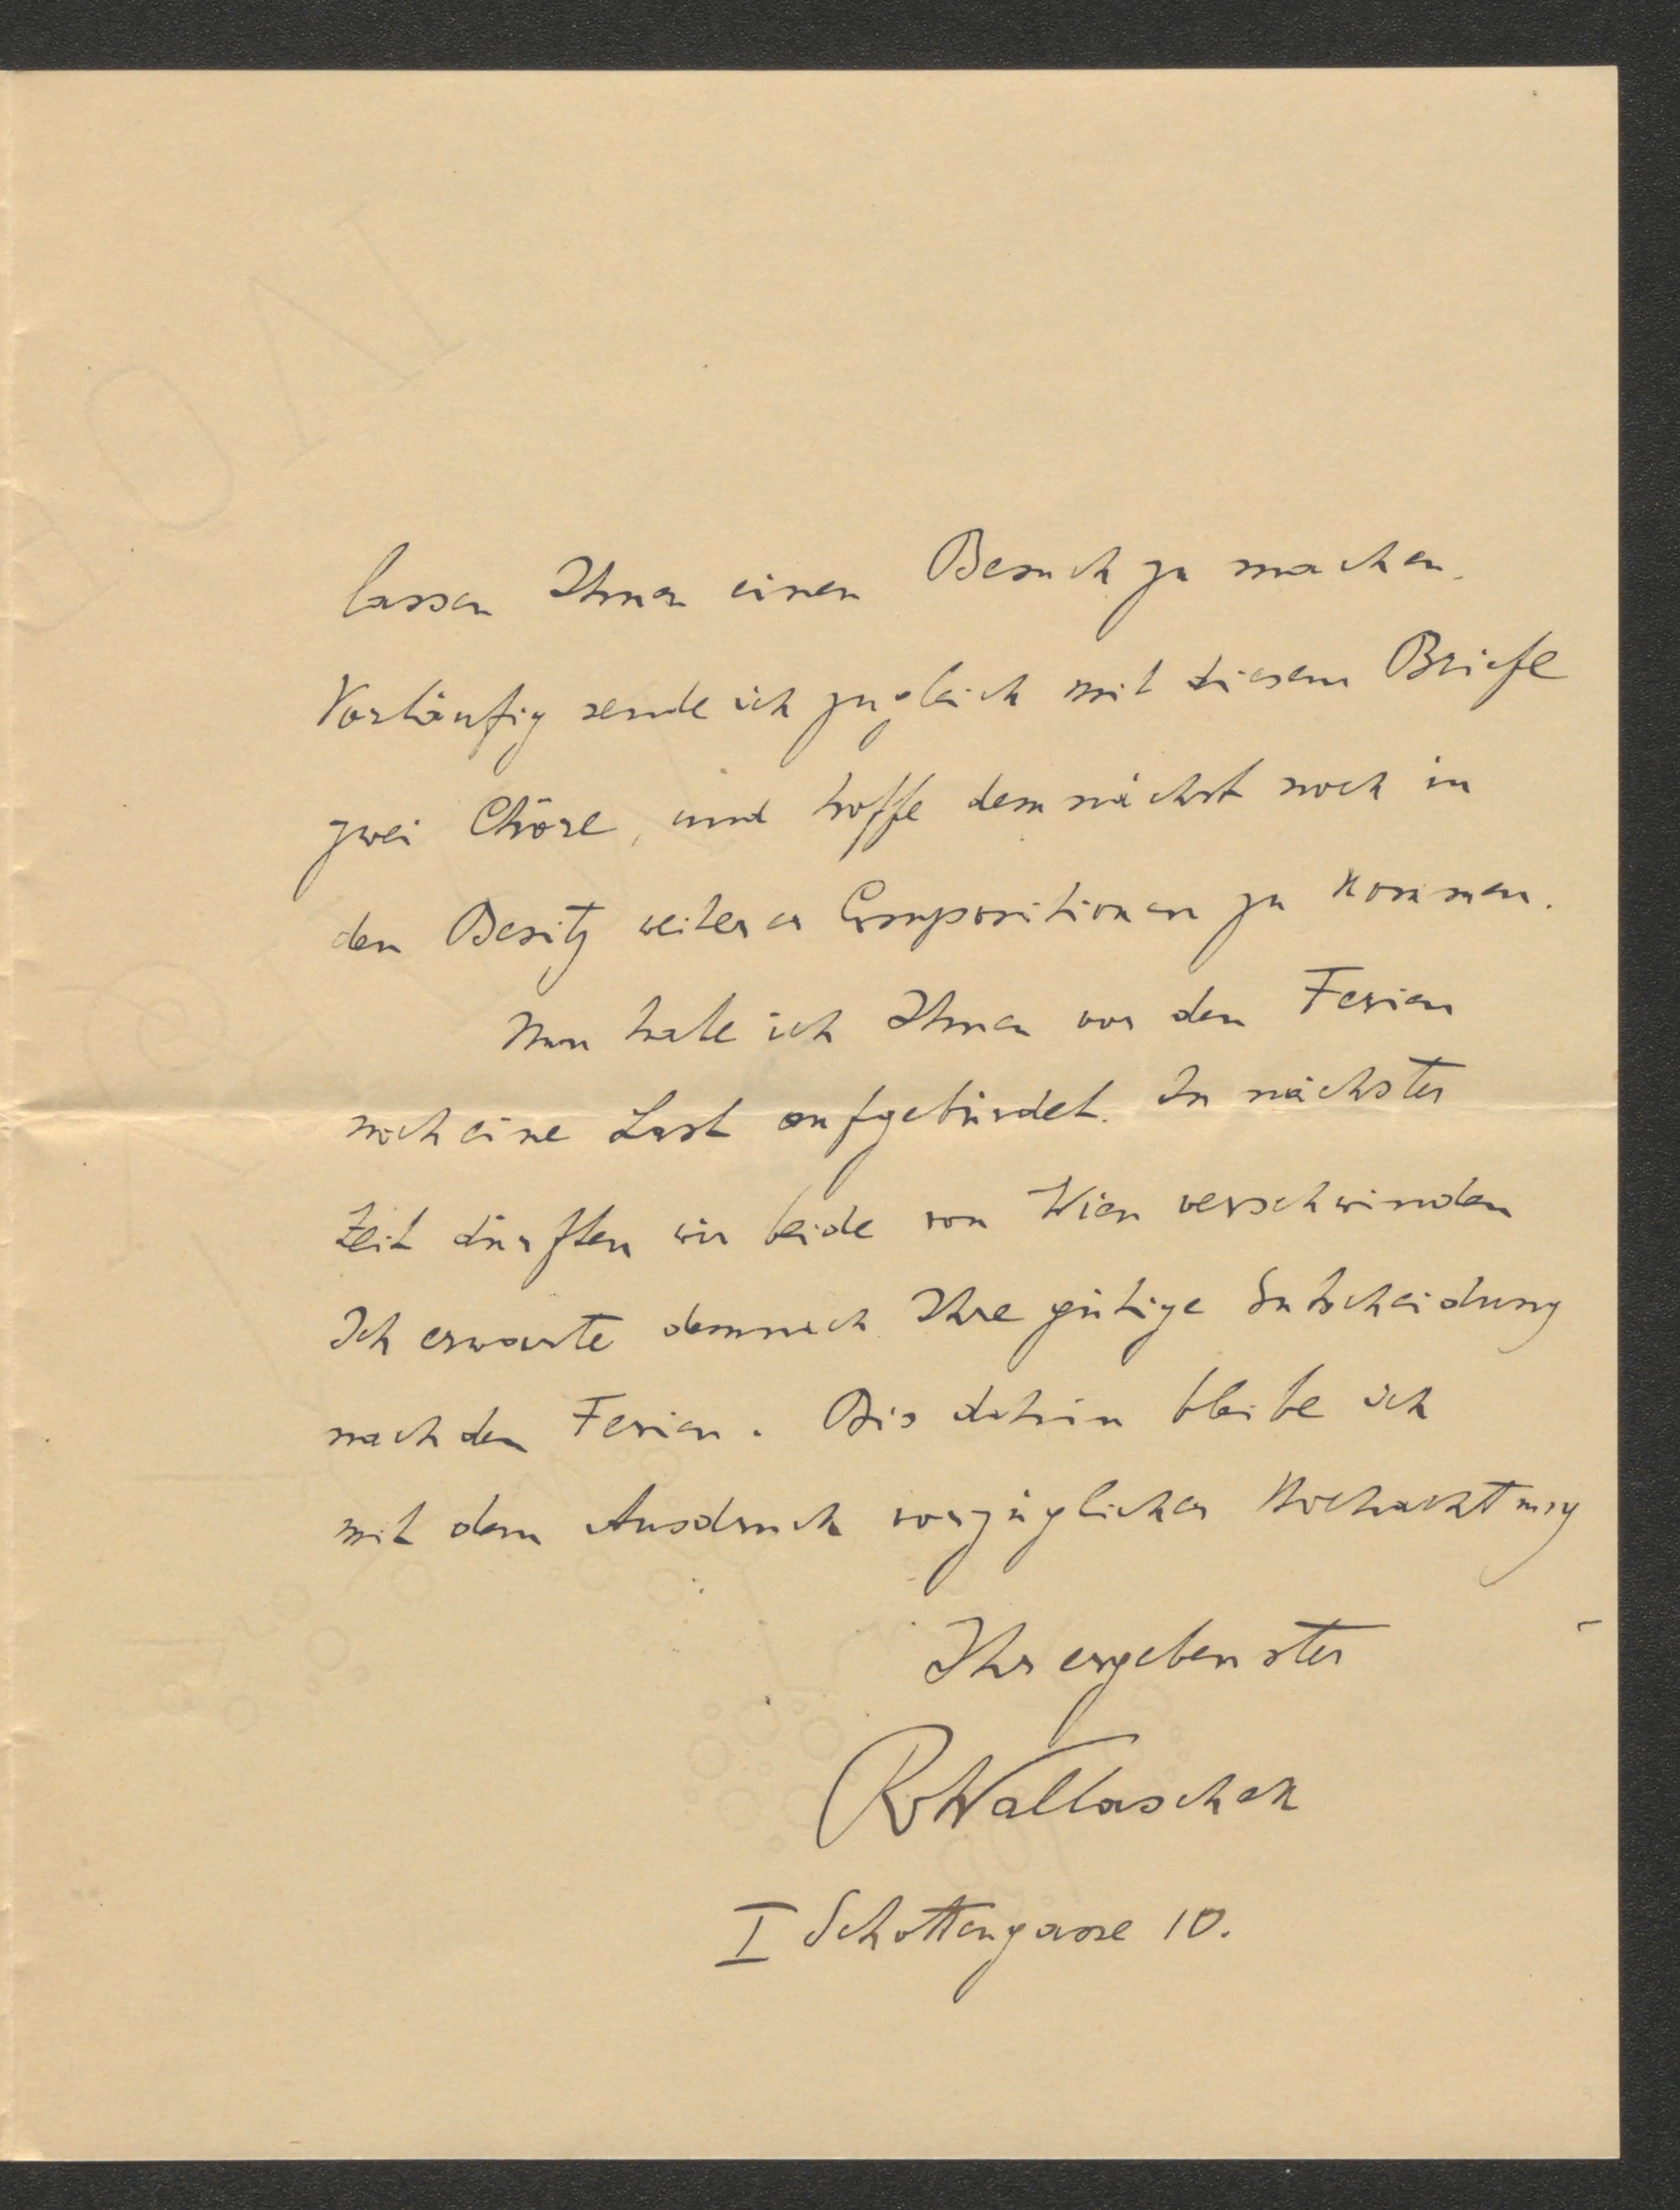 lassen Ihnen einen Besuch zu machen.
Vorläufig sende ich zugleich mit diesem Briefe
zwei Chöre, und hoffe demnächst noch in
den Besitz weiterer Compositionen zu kommen.
Nun habe ich Ihnen vor den Ferien
noch eine Last aufgebürdet. In nächster
Zeit dürften wir beide von Wien verschwinden
Ich erwarte demnach Ihre gütige Entscheidung
nach den Ferien. Bis dahin bleibe ich
mit dem Ausdruck vorzüglicher Hochachtung
Ihr ergebenster
RWallaschek
I Schottengasse 10.